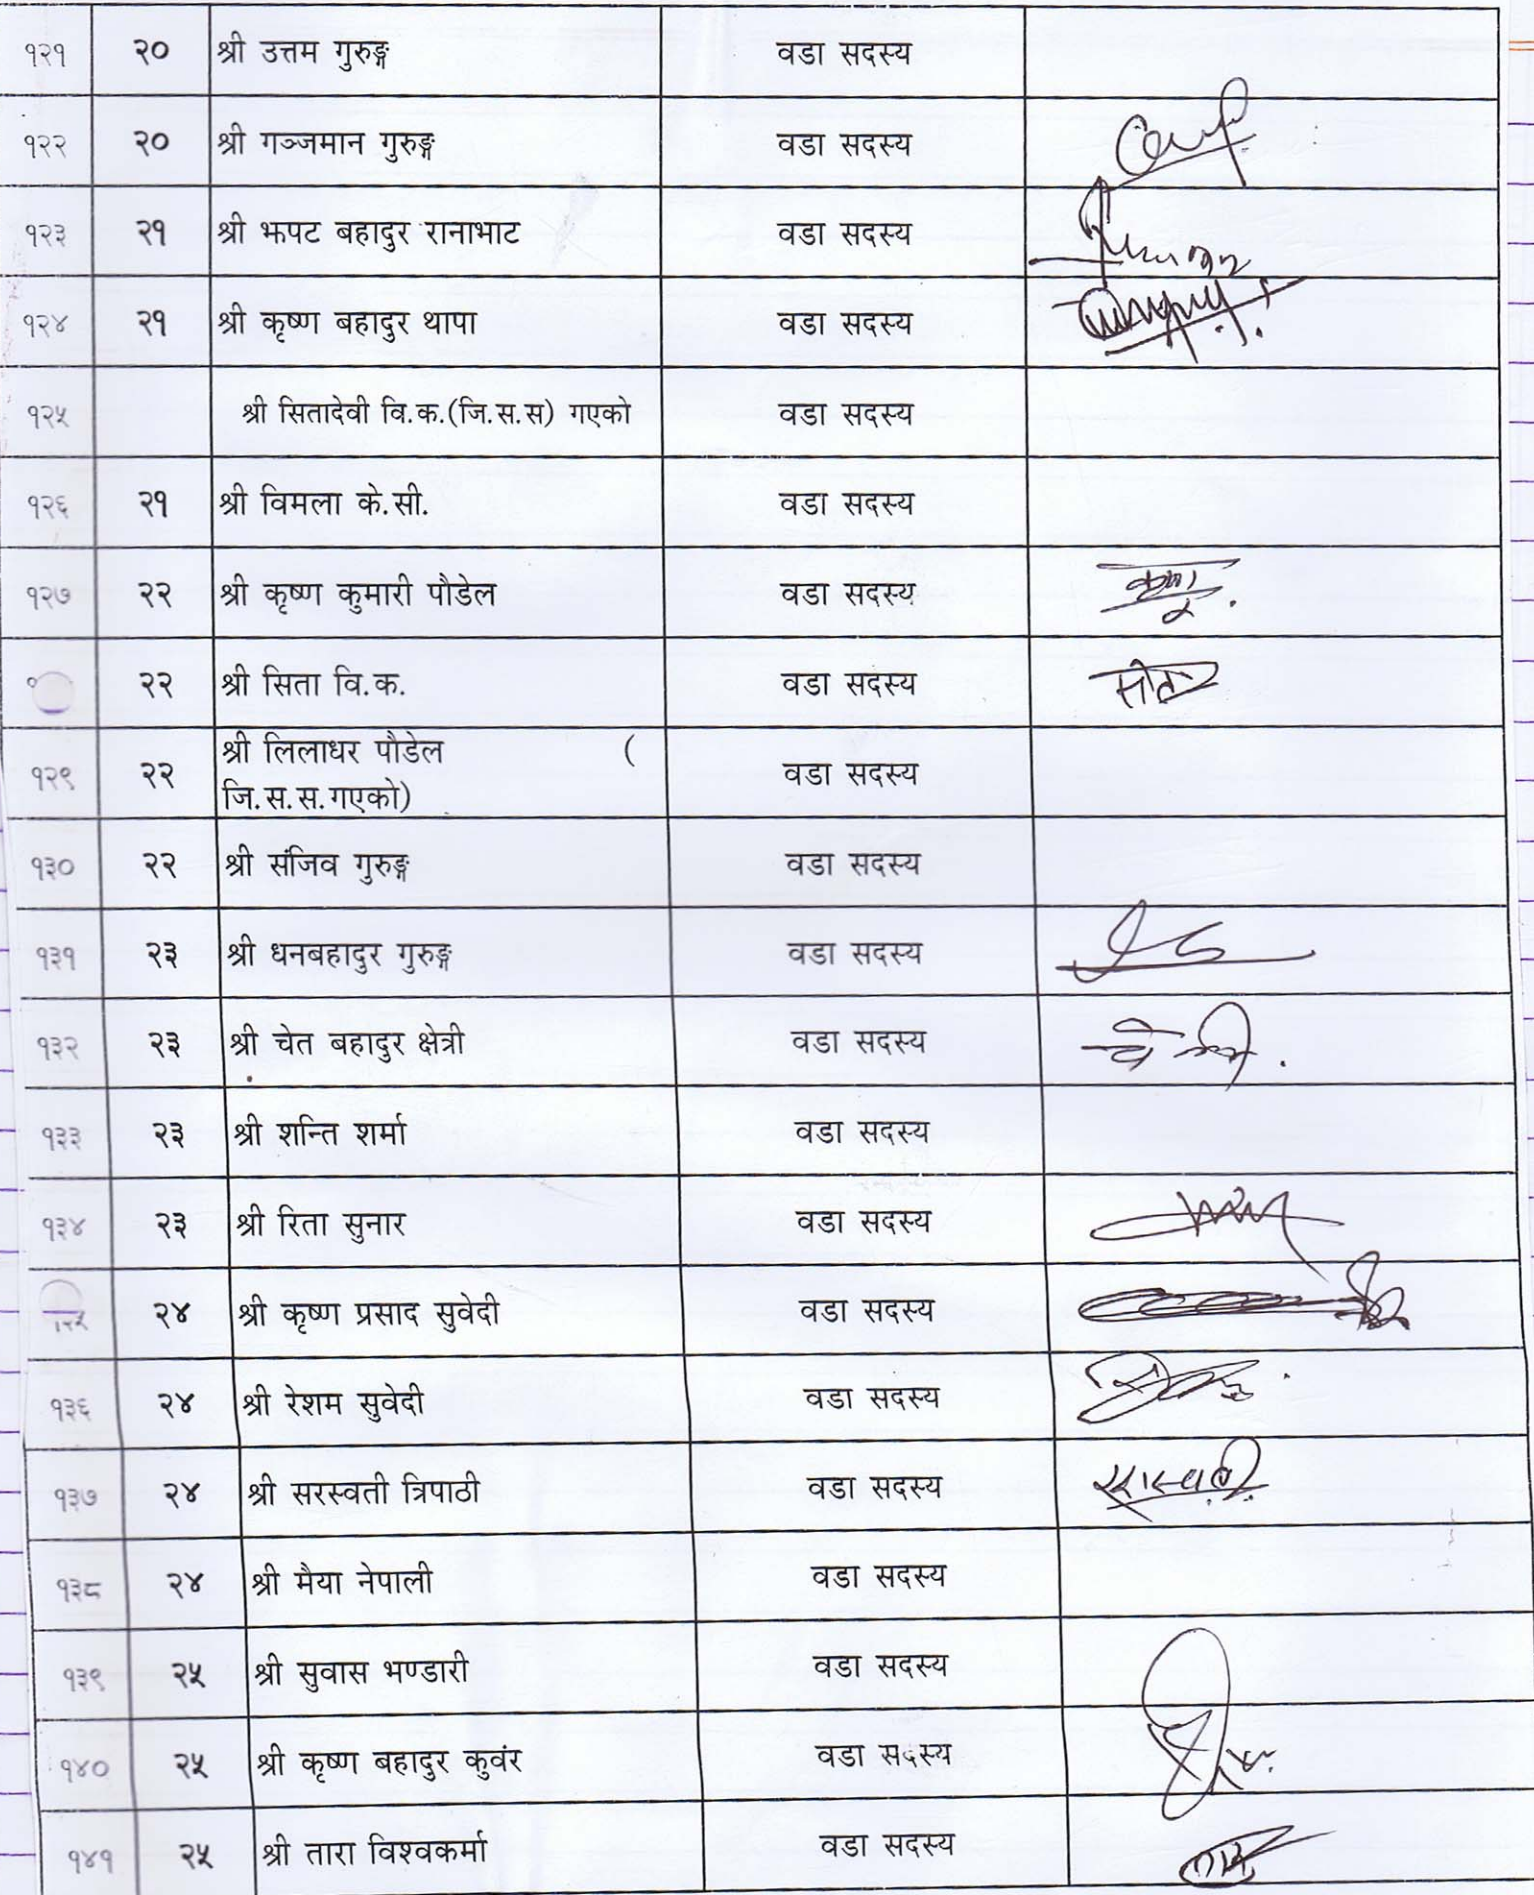 १२१ २० श्री उत्तम गुरुङ्ग वडा सदस्य
१२२ २० श्री गञ्जमान गुरुङ्ग वडा सदस्य
१२३ २१ श्री झपट बहादुर रानाभाट वडा सदस्य
१२४ २१ श्री कृष्ण बहादुर थापा वडा सदस्य
१२५ श्री सितादेवी वि.क.(जि.स.स) गएको वडा सदस्य
१२६ २१ श्री विमला के.सी. वडा सदस्य
१२७ २२ श्री कृष्ण कुमारी पौडेल वडा सदस्य
२२ श्री सिता वि.क. वडा सदस्य सीता
श्री लिलाधर पौडेल (
१२९ २२ वडा सदस्य
जि.स.स.गएको)
१३० २२ श्री संजिव गुरुङ्ग वडा सदस्य
१३१ २३ श्री धनबहादुर गुरुङ्ग वडा सदस्य
१३२ २३ श्री चेत बहादुर क्षेत्री वडा सदस्य
१३३ २३ श्री शन्ति शर्मा वडा सदस्य
१३४ २३ श्री रिता सुनार वडा सदस्य
२४ श्री कृष्ण प्रसाद सुवेदी वडा सदस्य
१३६ २४ श्री रेशम सुवेदी वडा सदस्य
१३७ २४ श्री सरस्वती त्रिपाठी वडा सदस्य
१३८ २४ श्री मैया नेपाली वडा सदस्य
१३९ २५ श्री सुवास भण्डारी वडा सदस्य
१४० २५ श्री कृष्ण बहादुर कुवंर वडा सदस्य
१४१ २५ श्री तारा विश्वकर्मा वडा सदस्य